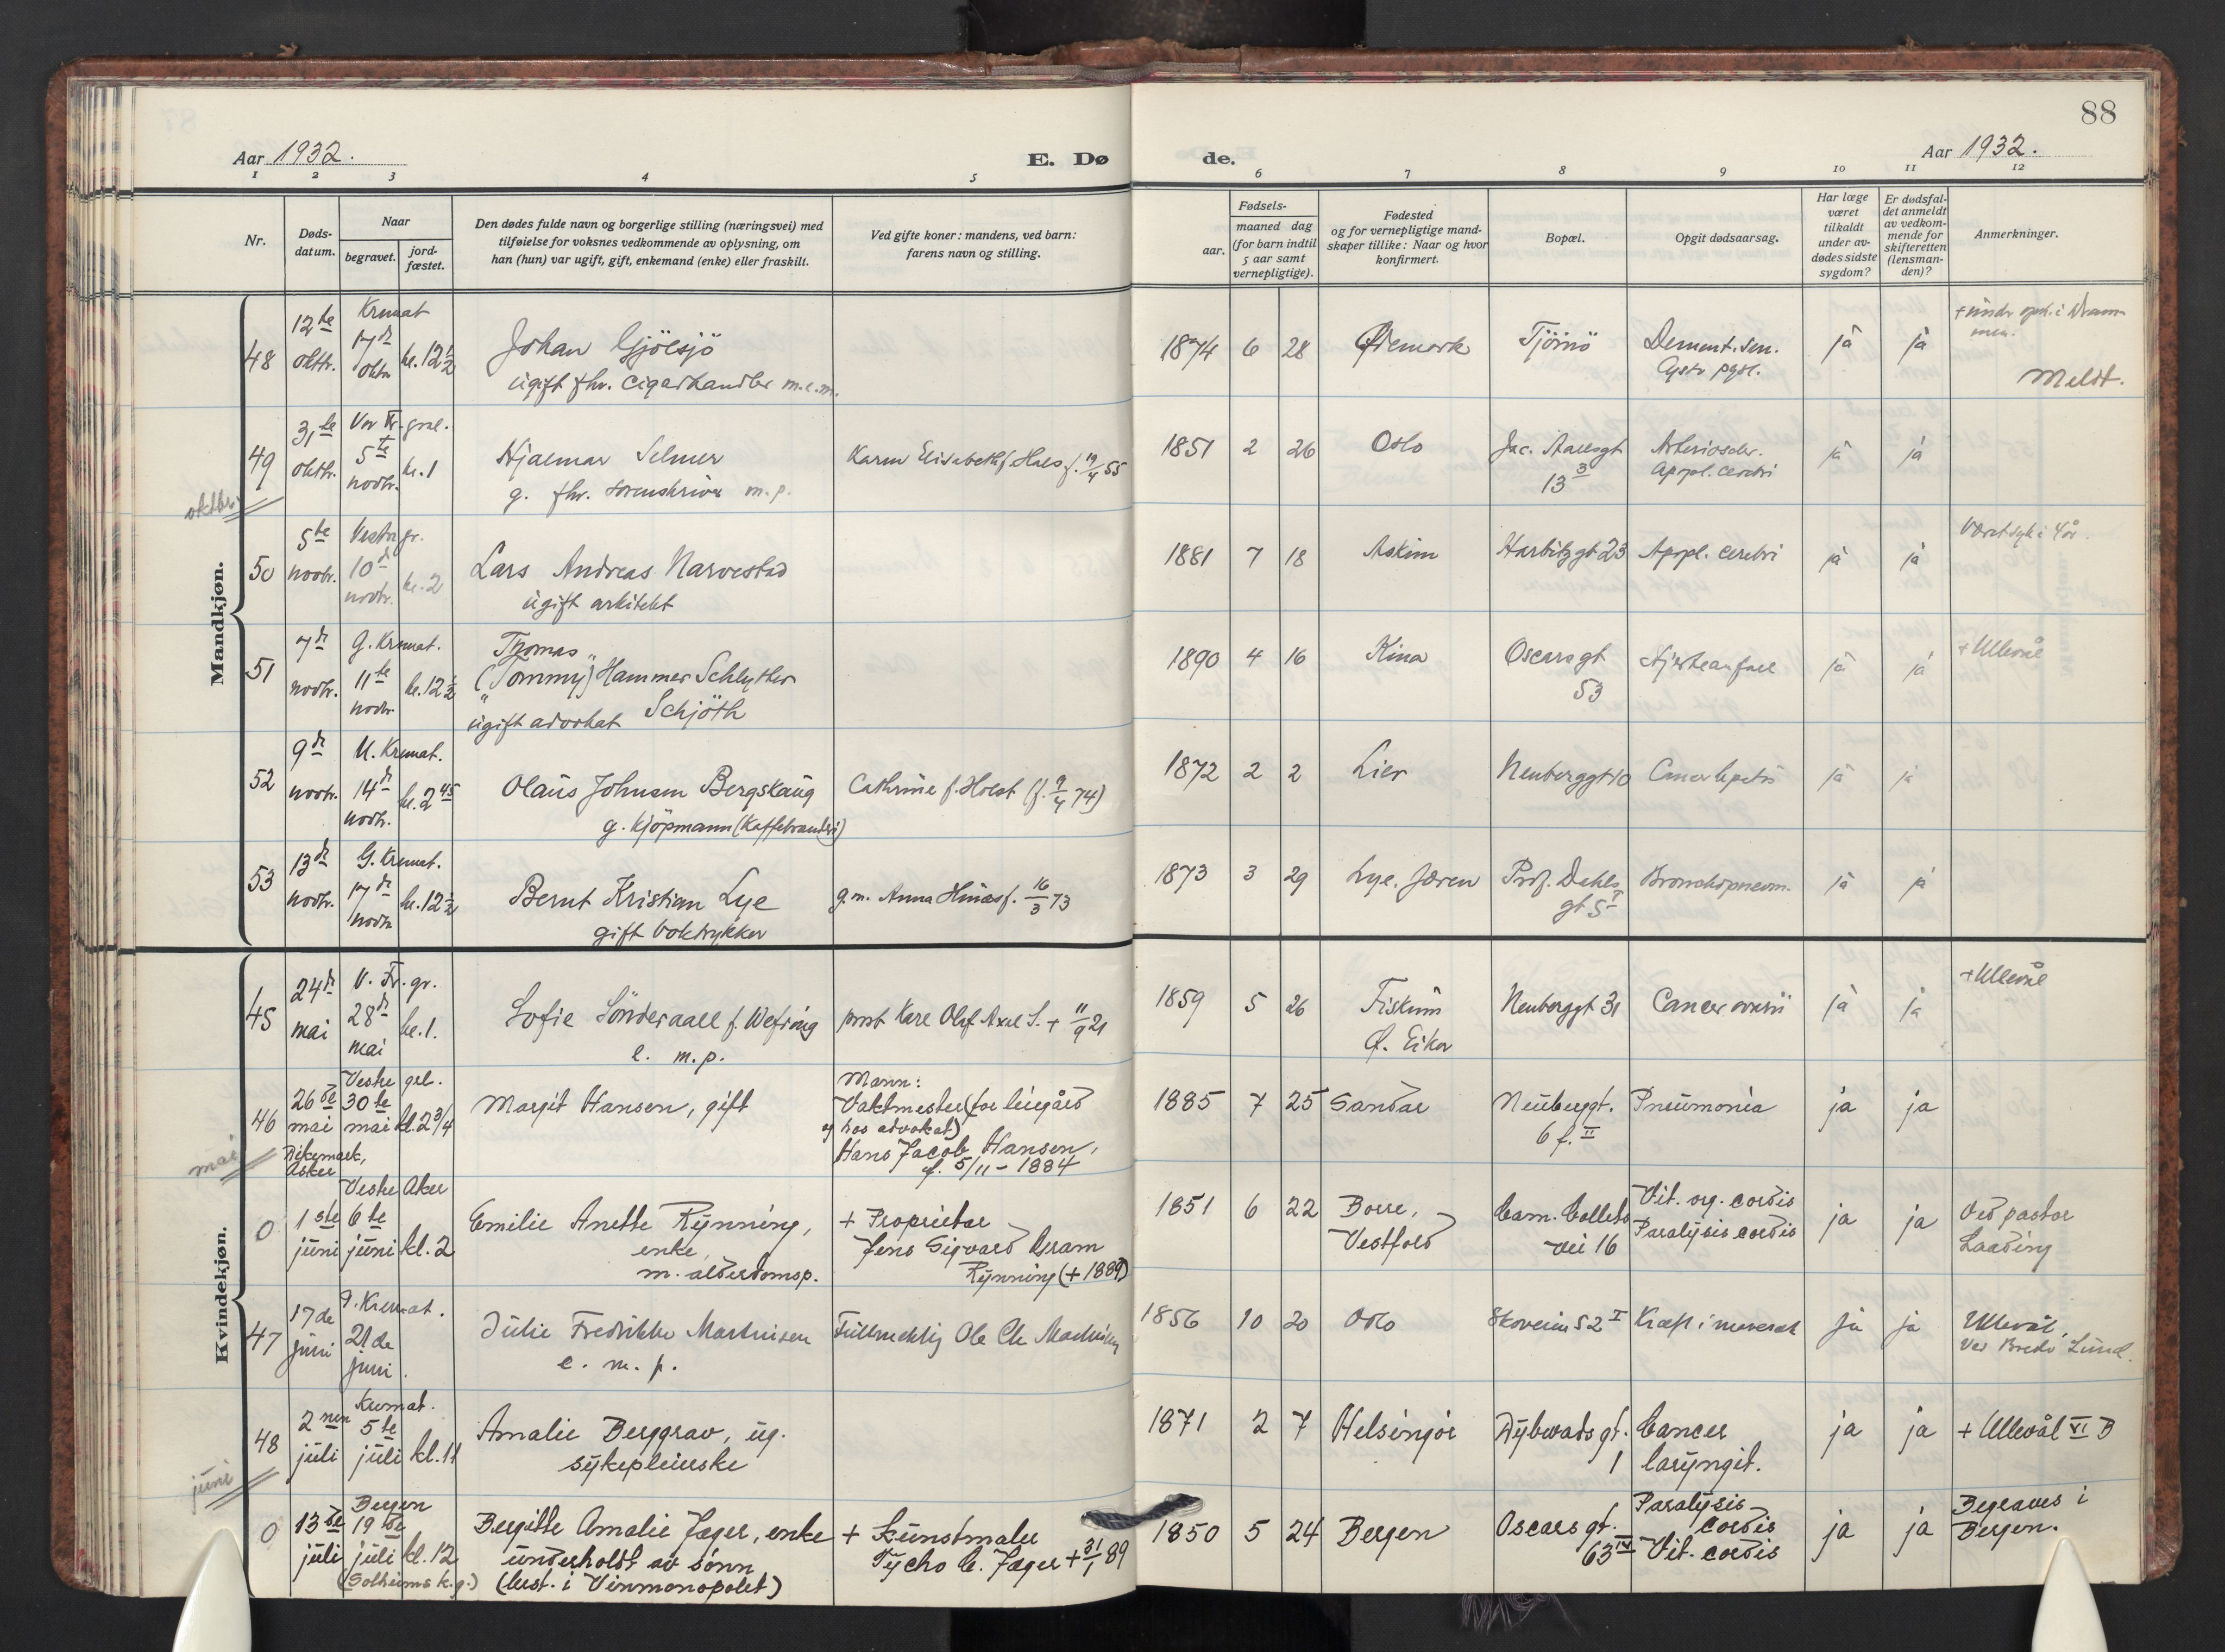 88
Aar 1932.
E. Dø
de.
Aar 1932.
1 2 3 4 5 6 7 8 9 10 11 12
Nr.
Døds-
datum.
Naar
begravet.
jord-
fæstet.
Den dødes fulde navn og borgerlige stilling (næringsvei) med
tilføielse for voksnes vedkommende av oplysning, om
han (hun) var ugift, gift, enkemand (enke) eller fraskilt.
Ved gifte koner: mandens, ved barn:
farens navn og stilling.
Fødsels-
aar.
maaned dag
(for barn indtil
5 aar samt
vernepligtige).
Fødested
og for vernepligtige mand-
skaper tillike: Naar og hvor
konfirmert.
Bopæl.
Opgit dødsaarsag.
Har læge
været
tilkaldt
under av-
dødes sidste
sygdom?
Er dødsfal-
det anmeldt
av vedkom-
mende for
skifteretten
(lensman-
den)?
Anmerkninger.
Mandkjøn.
48 12te oktbr. Kremat 17d oktbr kl. 12½
Johan Gjölsjö
ugift fhv. cigarhandler m.e.m.
1874 6 28 Ødemark Tjömö Dement. sen. ja ja
Meldt.
49 31te oktbr. Vor Fr. grl. 5te novbr. kl. 1
Hjalmar Selmer
g. fhv. sorenskriver m.p.
Karen Elisabeth f. Hals f. 19/4 55
1851 2 26 Oslo Jac. Aallsgt 13 3 Arterioscler.
Appl. cerebri ja ja
oktbr.
50 5te novbr. Vestre gr. 10d novbr. kl. 2
Lars Andreas Narvestad
ugift arkitekt
1881 7 18 Askim Harbitzgt 23 Appl. cerebri ja ja
Været syk i 4 år.
51 7d novbr. G. Kremat. 11te novbr kl. 12½
Thomas
("Tommy") Hammer Schlytter
Schjöth
ugift advokat
1890 4 16 Kina Oscarsgt 53 Hjerteanfall ja ja
+ Ullevål
52 9d novbr. N. Kremat. 14d novbr. kl. 2 45
Olaus Johnsen Bergskaug
g. kjöpmann (Kaffebrenderi)
Cathrine f. Holst (f. 9/4 74)
1872 2 2 Lier Neuberggt 10 Cancer hepatis ja ja
53 13d novbr. G. Kremat. 17d novbr kl. 12½
Bernt Kristian Lye
gift boktrykker
g.m. Anna Hinas f. 16/3 73
1873 3 29 Lye. Jæren Prof. Dahls gt 5 I Bronchopneum. ja ja
Kvindekjøn.
45 24d mai V. Fr. gr. 28d mai kl. 1.
Sofie Sönderaall f. Wefring
e. m.p.
prost Karl Oluf Axel S. + 11/9 21
1859 5 26 Fiskum
Ø. Eiker
Neuberggt 31 Cancer ovarii ja ja
+ Ullevål
46 26de mai Vestre gel. 30te mai kl. 2¾
Dikemark,
Asker
Margit Hansen, gift
Mann:
Vaktmester (for leiegård
og hos advokat)
Hans Jacob Hansen,
f. 5/11 - 1884
1885 7 25 Sandar Neubergt. 6 f. II Pneumonia ja ja
mai
0 1ste juni Vestre Aker 6te juni kl. 2
Emilie Anette Rynning,
enke,
m. alderdomsp.
+ Proprietær
Jens Sigvard Gram
Rynning (+ 1889)
1851 6 22 Borre,
Vestfold
Cam. Colletts vei 16
Vit. org. cordis
Paralysis cordis
ja ja
Ved pastor
Laading
47 17de juni G. Kremat. 21de juni.
Julie Fredrikke Martinsen
e. m. p.
Fullmektig Ole Chr Martinsen
1856 10 20 Oslo Skovein 52 I Kræft i mavesæk ja ja
Ullevål.
Ved Bredo Lund.
48 2nen juli Kremat. 5te juli kl. 11
Amalie Berggrav, ug.
sykepleierske
1871 2 7 Helsingör Dybwadsgt. 1 Cancer
laryngit. ja ja
+ Ullevål VI B
juni
0 13de juli Bergen 19de juli kl. 12
(Solheims k.g.)
Bergitte Amalie Jæger, enke
underholdt av sønn
(best. i Vinmonopolet)
+ Kunstmaler
Tycho C. Jæger + 31/1 89
1850 5 24 Bergen Oscarsgt. 63 IV
Paralysis
cordis
Vit. cordis
ja ja
Begraves i
Bergen.